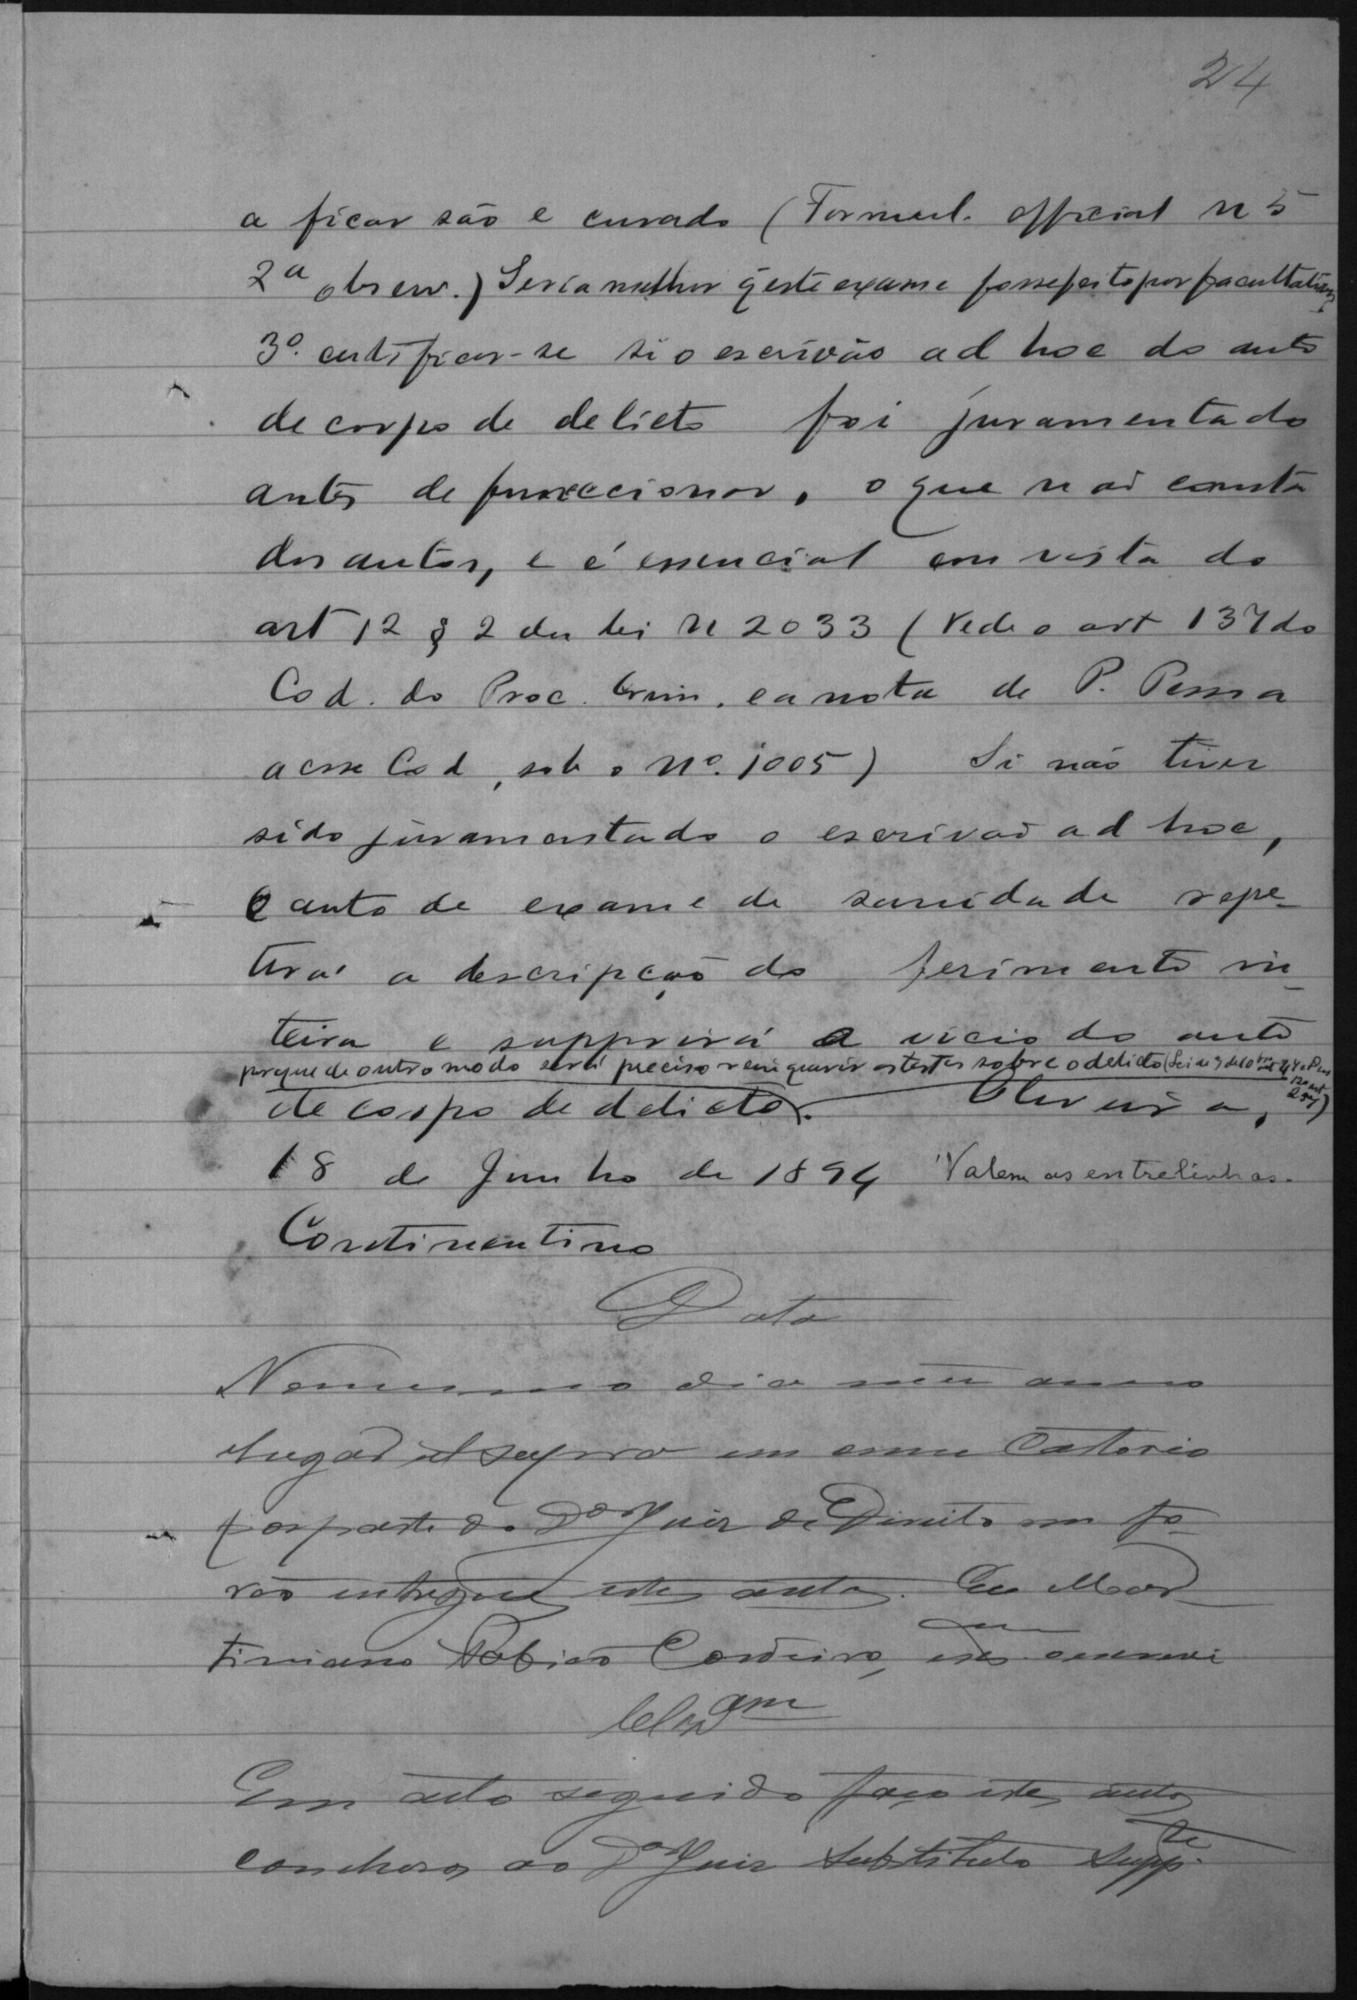 24
a ficar são e curado (Formul. official n 5
2ª observ.) Seria melhor q̃ este exame fosse feito por facultativos
3º. certificar-se si o escrivão ad hoc do auto
de corpo de delicto foi juramentado
antes de funccionar, o que não consta
dos autos, e é essencial em vista do
art 12 § 2 da lei N 2033 (Vede o art 137 do
Cod. do Proc. Crim. e a nota de P. Pessoa
a esse Cod, sob o Nº. 1005) Si não tiver
sido juramentado o escrivão ad hoc,
o auto de exame de sanidade repe-
tirá a descripção do ferimento in-
teira e supprirá o vicio do auto
porque de outro modo será preciso reinquerir as testes sobre o delicto (Lei de 3 de
de corpo de delicto). Oliveira,
18 de Junho de 1894 Valem as entrelinhas.
Continentino
Data
No mesmo dia mez anno
e lugar supra em meu Cartorio
por parte do Dor Juiz de Direito me fo-
rão entregues estes autos. Eu Mar-
tiniano Cordeiro, escrevi
Clsam
Em acto seguido faço estes autos
conclusos ao Dor Juiz Substituto Suppte